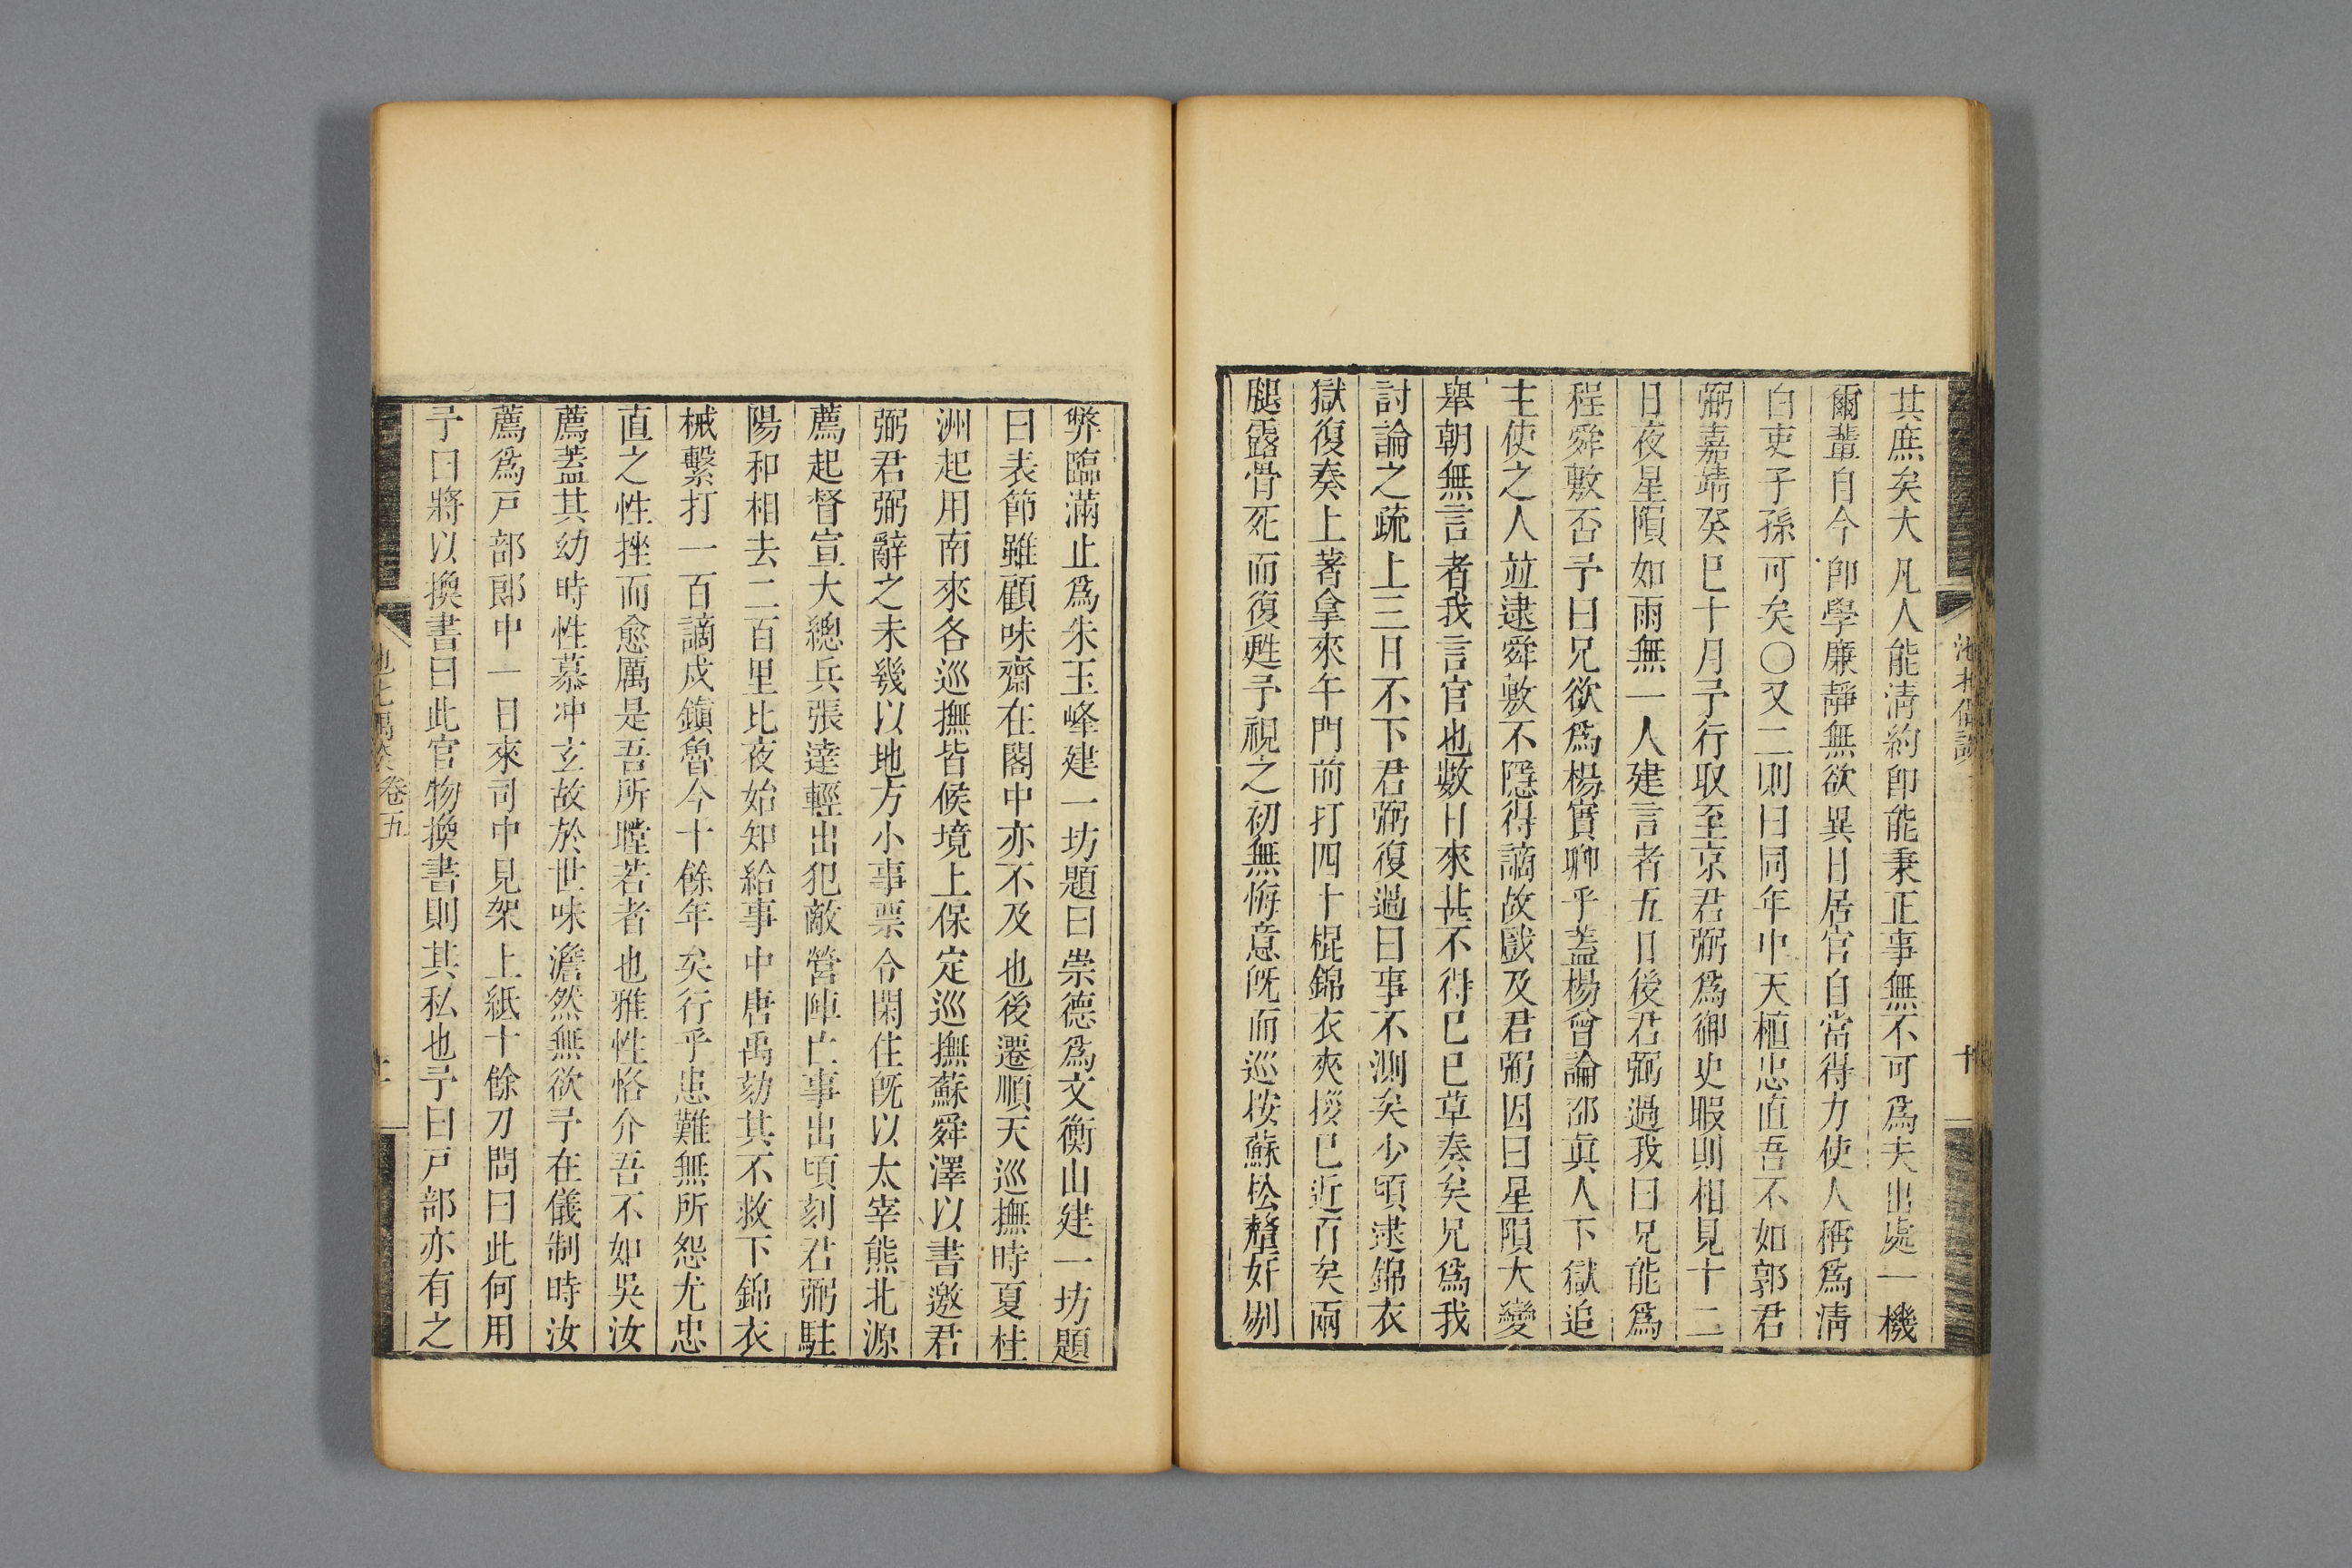 其庶矣大凡人能淸約卽能秉正事無不可爲夫出處一機
爾輩自今卽學廉靜無欲異日居官自當得力使人稱爲淸
白吏子孫可矣〇又二則曰同年中天植忠直吾不如郭君
弼嘉靖癸巳十月予行取至京君弼爲御史暇則相見十二
日夜星隕如雨無一人建言者五日後君弼過我曰兄能爲
程舜敷否予曰兄欲爲楊實卿乎蓋楊曾論邵眞人下獄追
主使之人並逮舜敷不隱得謫故戲及君弼因曰星隕大變
舉朝無言者我言官也數日來甚不得已已草奏矣兄爲我
討論之疏上三日不下君弼復過曰事不測矣少頃逮錦衣
獄復奏上著拿來午門前打四十棍錦衣夾拶已近百矣兩
腿露骨死而復甦予視之初無悔意旣而巡按蘇松釐奸剔
弊臨滿止爲朱玉峰建一坊題曰崇德爲文衡山建一坊題
曰表節雖顧味齋在閣中亦不及也後遷順天巡撫時夏桂
洲起用南來各巡撫皆候境上保定巡撫蘇舜澤以書邀君
弼君弼辭之未幾以地方小事票令閑住旣以太宰熊北源
薦起督宣大總兵張達輕出犯敵營陣亡事出頃刻君弼駐
陽和相去二百里比夜始知給事中唐禹劾其不救下錦衣
械繫打一百謫戍鎭魯今十餘年矣行乎患難無所怨尤忠
直之性挫而愈厲是吾所瞠若者也雅性恪介吾不如吳汝
薦蓋其幼時性慕冲玄故於世味澹然無欲予在儀制時汝
薦爲戶部郞中一日來司中見架上紙十餘刀問曰此何用
予曰將以換書曰此官物換書則其私也予曰戶部亦有之
池北偶談
十
卷五